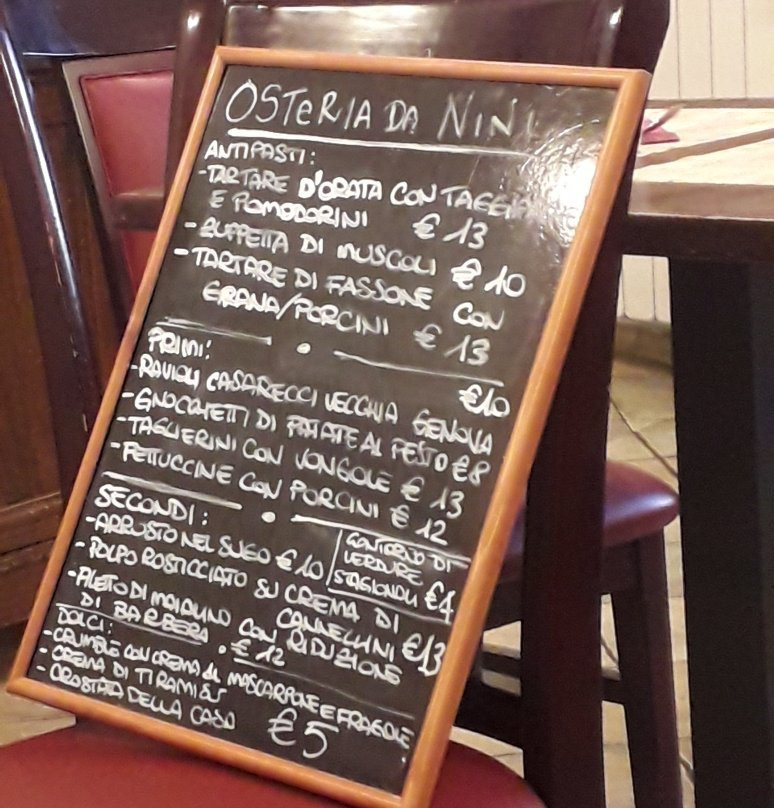 OSTERIA DA NINI
ANTIPASTI:
-TARTARE D'ORATA CON TAGGIA
E POMODORINI € 13
-ZUPPETTA DI MUSCOLI € 10
-TARTARE DI FASSONE CON
GRANA/PORCINI € 13
PRIMI:
€10
-RAVIOLI CASARECCI VECCHIA GENOVA
-GNOCCHETTI DI PATATE AL PESTO €8
-TAGLIERINI CON VONGOLE € 13
-FETTUCCINE CON PORCINI € 12
SECONDI:
-ARROSTO NEL SUGO €10
CONTORNO DI
VERDURE
STAGIONALI €4
-POLPO ROSTICCIATO SU CREMA DI
CANNELLINI €13
-FILETTO DI MAIALINO CON RIDUZIONE
DI BARBERA • € 12
DOLCI:
-CRUMBLE CON CREMA di MASCARPONE E FRAGOLE
-CREMA DI TIRAMISÙ
-CROSTATA DELLA CASA €5